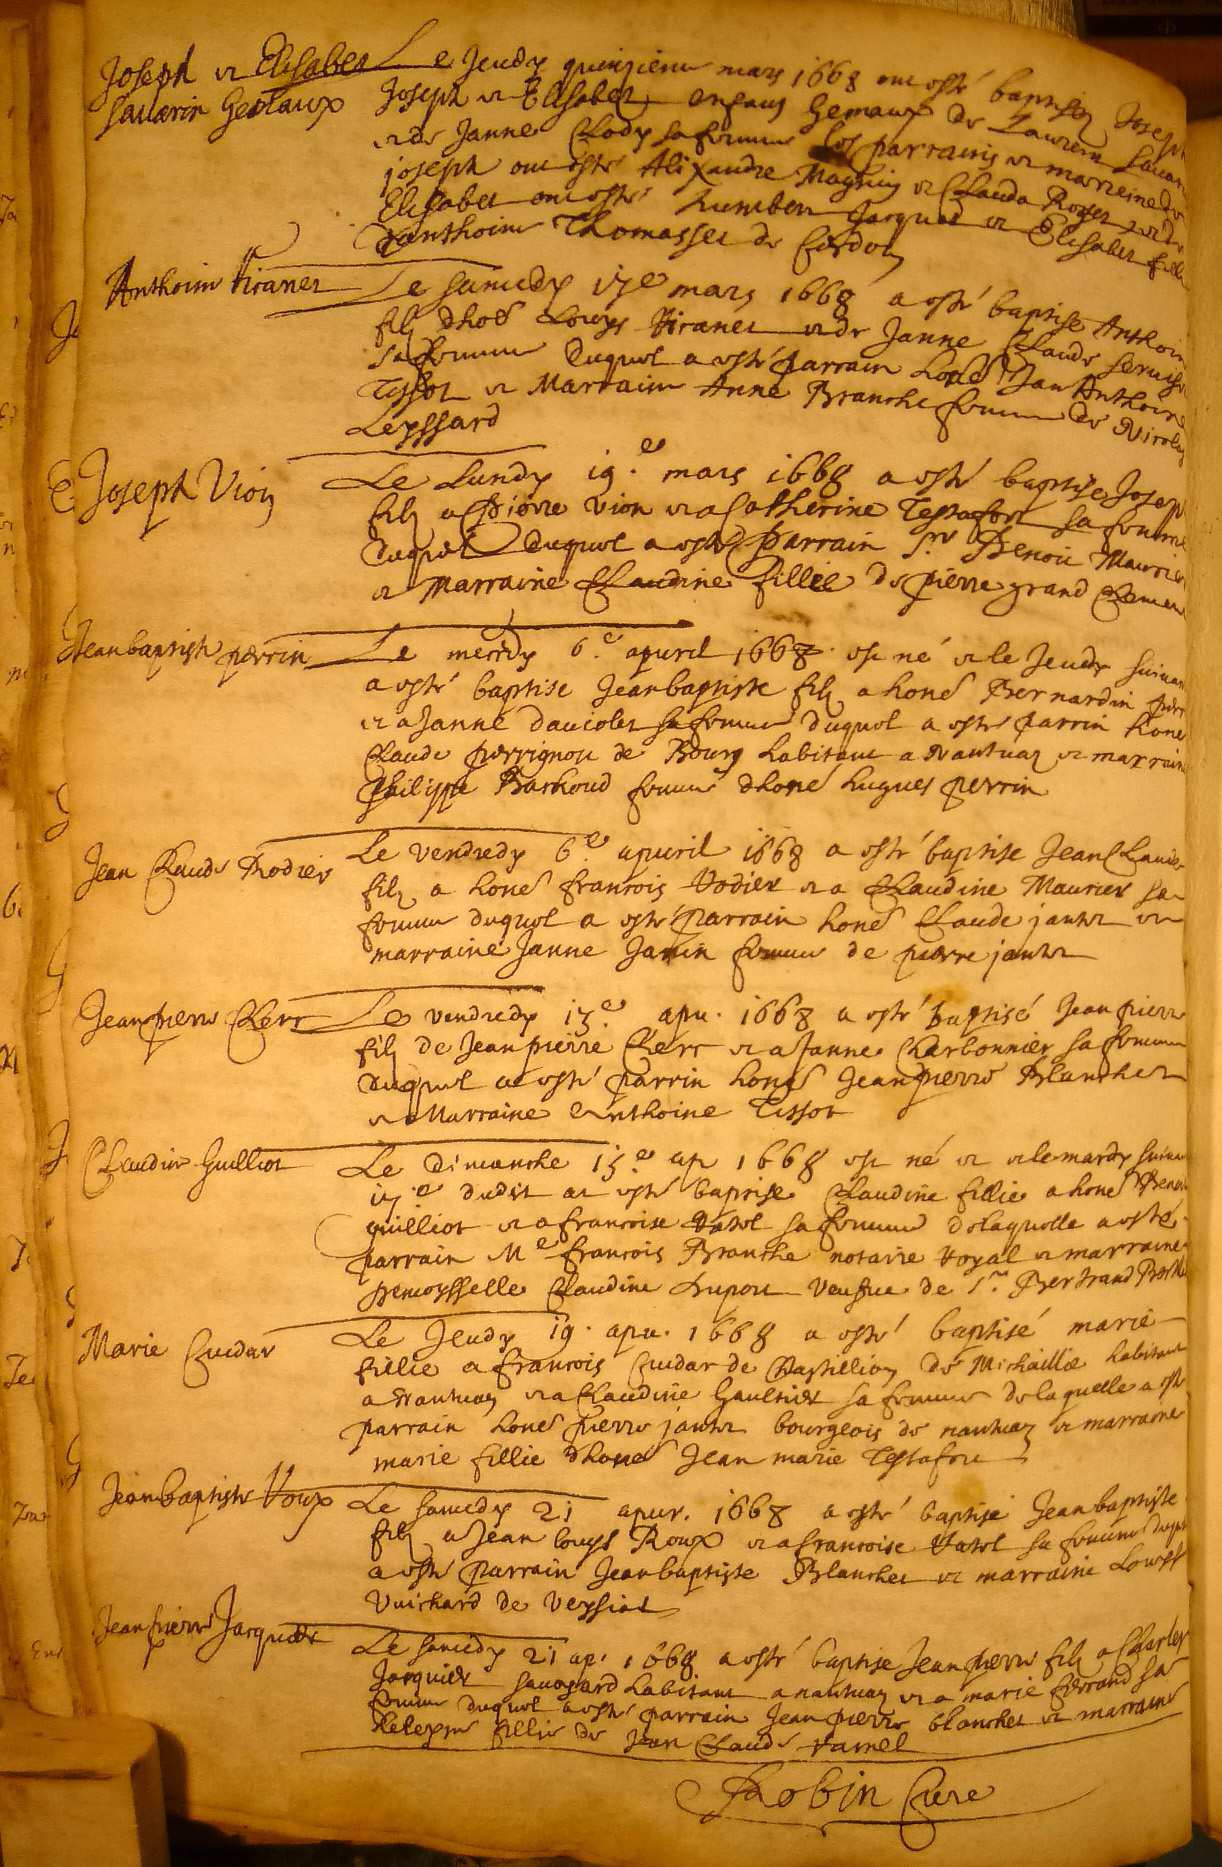 Joseph et Elisabet
Savarin Gemaux
Le Jeudy quinzieme mars 1668 ont esté baptisez Joseph
Joseph et Elisabet enfans Gemaux de Laurem Savarin
et de Janne Clody sa femme les parrains et marreine de
joseph ont esté Alixandre Magnin et Clauda Roget et de
Elisabet ont esté Humbert Jacquet et Elisabet fille
d'anthoine Thomasset de Cerdon
Anthoine Viranet
Le samedy 17e mars 1668 a esté baptise Anthoine
filz dhoe Louys Viranet et de Janne Claude
sa femme duquel a esté parrain hone Jan Anthoine
Tissot et Marraine Anne Branche femme de Nicolas
Leyssard
Joseph Vion
Le Lundy 19.e mars 1668 a esté baptise Joseph
filz a Pierre Vion et a Catherine Testafort sa femme
duquel duquel a esté parrain Sr Benoit Maurier
et marraine Claudine fillie de pierre grand Clement
Jeanbaptiste perrin
Le mecrdy 6.e apuril 1668 est né et le Jeudy suivant
a esté baptise Jeanbaptiste filz a hone Bernardin perrin
et a Janne daviolet sa femme duquel a esté parrin hone
Claude perrignon de Bourg habitant a Nantua et marraine
Philippe Barhoud femme dhone hugues perrin
Jean Claude Rodier
Le Vendredy 6.e apuril 1668 a esté baptise Jean Claude
filz a hone francois Rodier et a Claudine Maurier sa
femme duquel a esté parrain hone Claude jantet et
marraine Janne Janin femme de pierre jantet
Jeanpierre Clerc
Le vendredy 13.e apu. 1668 a esté baptisé Jean pierre
filz de Jean pierre Clerc et a Janne Charbonnier sa femme
duquel a esté parrin hone Jeanpierre Blanchet
et Marraine Anthoine Tissot
Claudine Guilliot
Le dimanche 15.e ap 1668 est né et et le mardy suivant
17.e dudit at esté baptise Claudine fillie a hone Benoit
guilliot et a francoise Ravet sa femme delaquelle a esté
parrain Me francois Branche notaire Royal et marraine
Demoysselle Claudine Dupont Veufue de Sr. Bertrand
Marie Cuidar
Le Jeudy 19. apu. 1668 a esté baptisé marie
fillie a francois Cuidar de Chastillion de Michaillie habitant
a Nantuaz et a Claudine Gaultier sa femme delaquelle a esté
parrain hone pierre jantet bourgeois de nantuaz et marraine
marie fillie dhone Jean marie Testafort
Jeanbaptiste Roux
Le samedy 21 apur. 1668 a esté baptisé Jeanbaptiste
filz a Jean louys Roux et a francoise Ravet sa femme duquel
a esté parrain Jeanbaptiste Blanchet et marraine Louyse
Vuichard de Veyssiat
Jeanpierre Jacquier
Le samedy 21 ap. 1668 a esté baptise Jeanpierre filz a Charles
Jacquier savoyard habitant a nantuaz et a marie ferrand sa
femme duquel a esté parrain Jean pierre blanchet et marraine
fillie de Jean Claude Ravel
Robin Cure